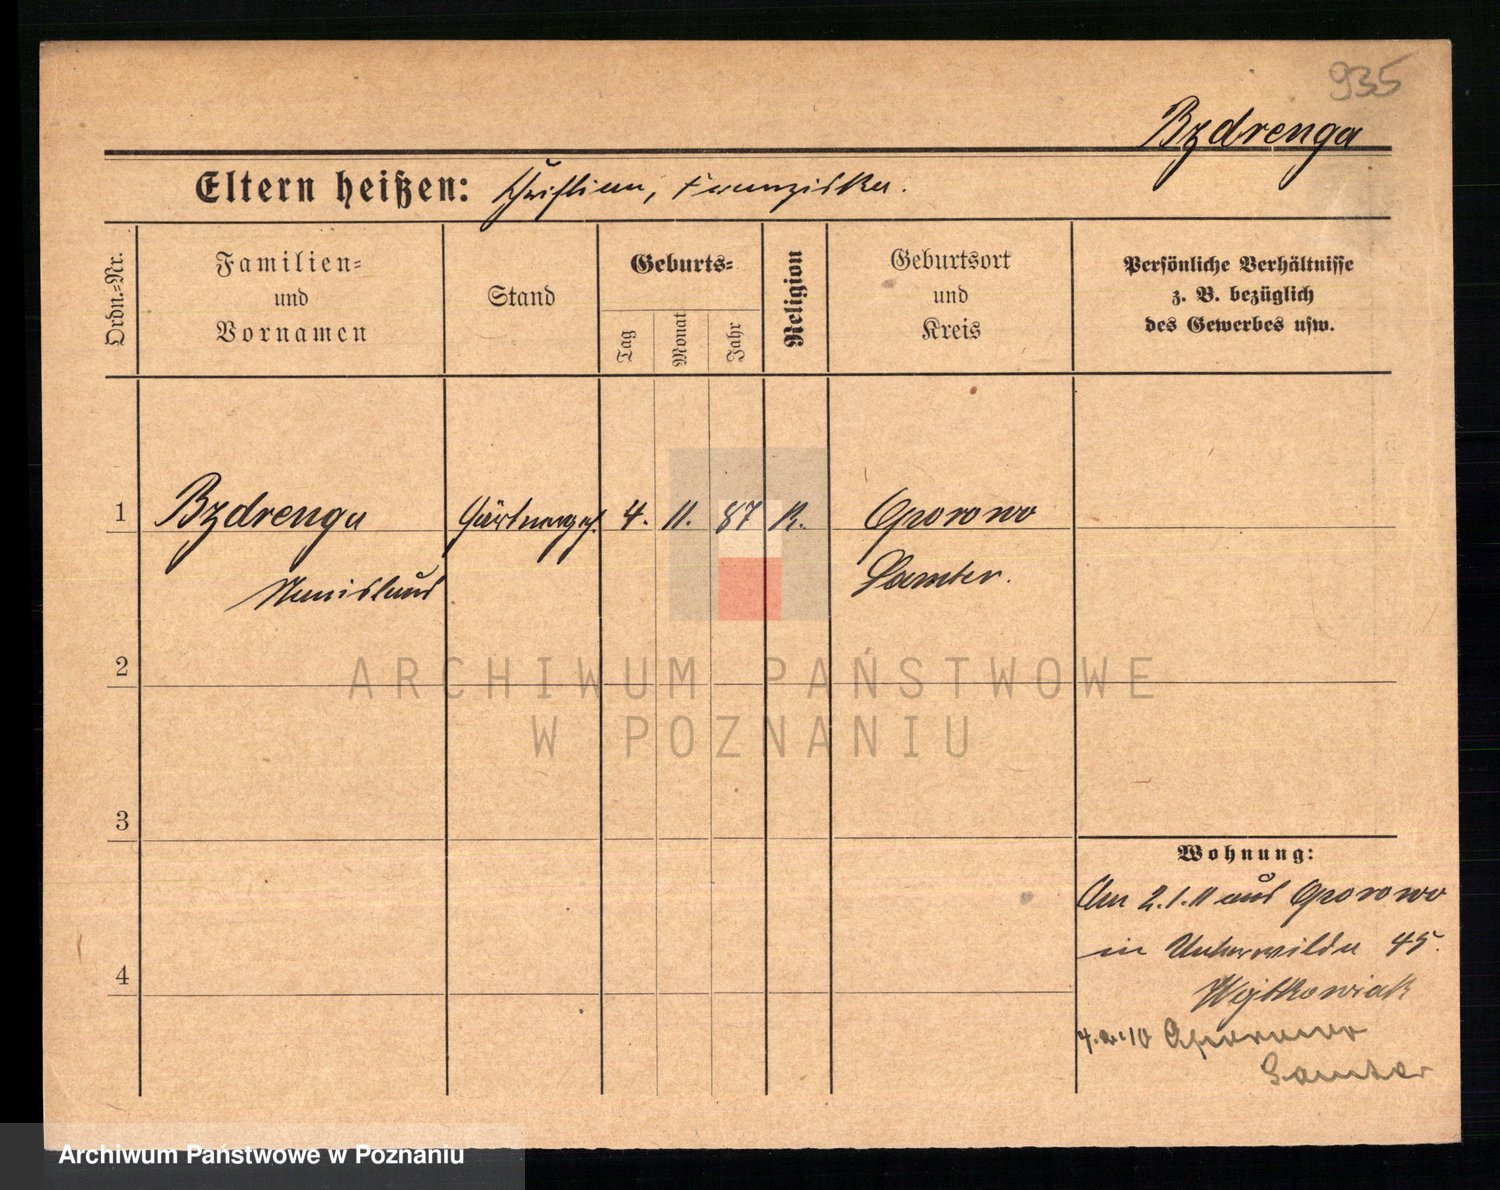 935
Bzdrenga
Eltern heißen: Christian, Franziska.
Ordn.=Nr.
Familien=
und
Vornamen
Stand
Geburts=
Tag
Monat
Jahr
Religion
Geburtsort
und
Kreis
Persönliche Verhältnisse
z. B. bezüglich
des Gewerbes usw.
1 Bzdrenga Gärtnergeh. 4. 11. 87 K. Oporowo
Stanislaus Samter.
2
ARCHIWUM PAŃSTWOWE
W POZNANIU
3
Wohnung:
Am 2.1.11 aus Oporowo
in Unterwilda 45.
Wojtkowiak
4
10 Oporowo
Samter
Archiwum Państwowe w Poznaniu